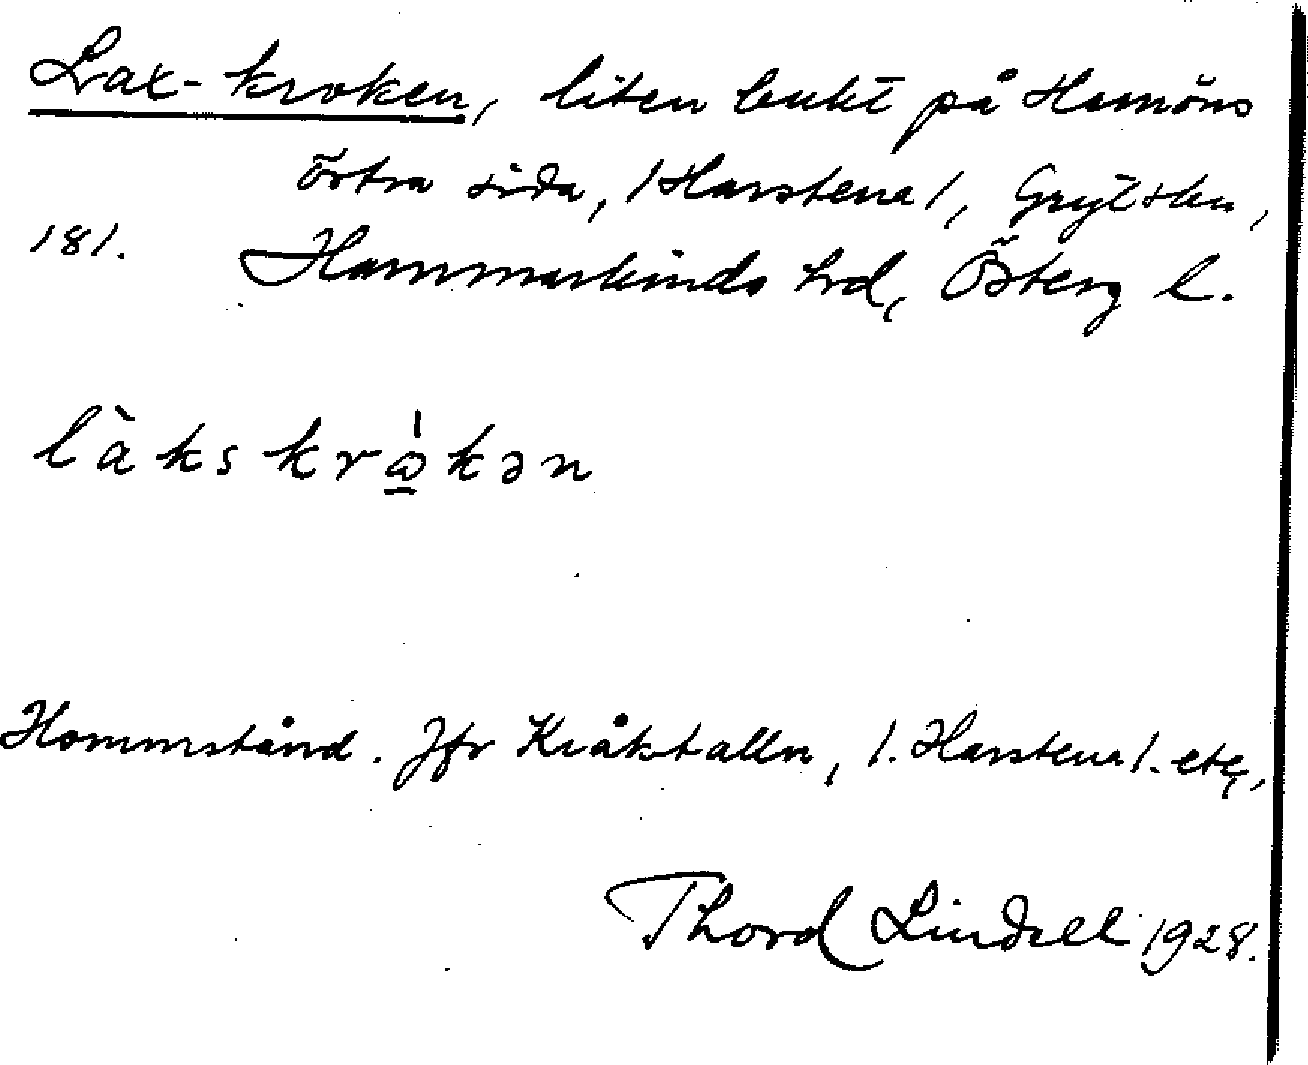 Lax-kroken, liten bukt på Hamöns
östra sida, /Harstena/, Gryt skn,
181. Hammarkinds hrd, Österg l.
làkskrω̲̍kən
Hommstånd. Jfr Kråkstalln, /.Harstena/. etc,
Thord Lindell 1928.